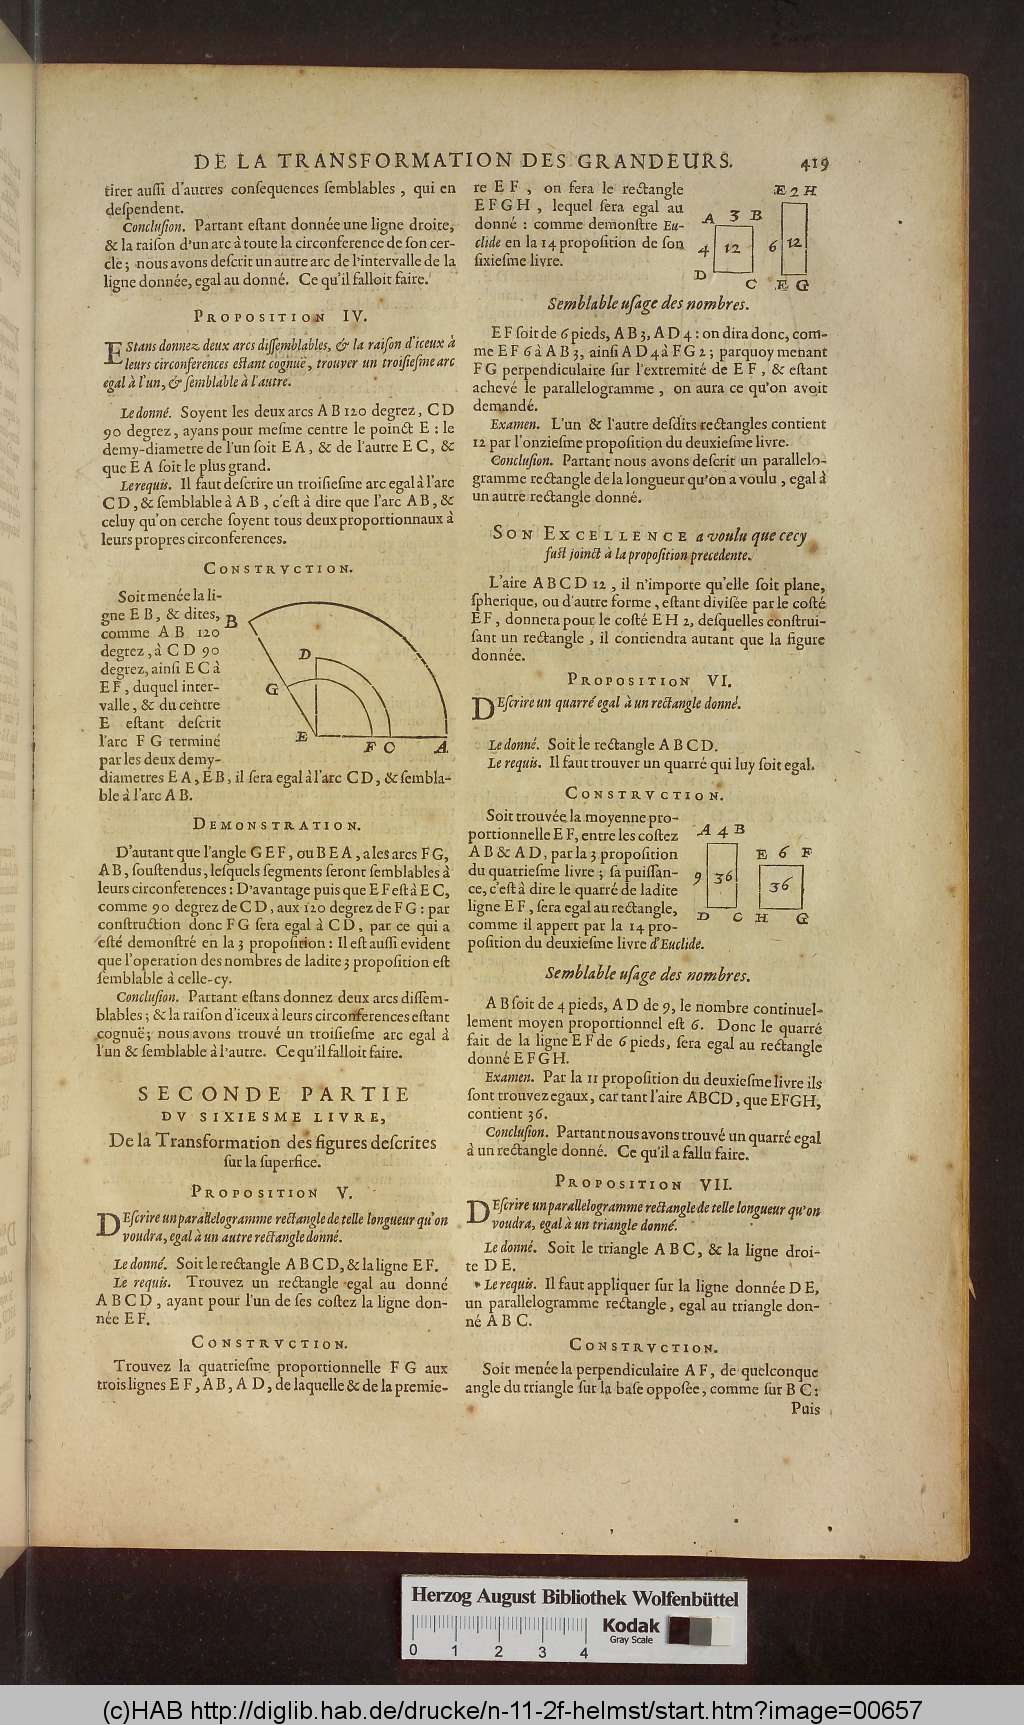 DE LA TRANSFORMATION DES GRANDEURS. 419
tirer auſſi d'autres conſequences ſemblables, qui en
deſpendent.
Concluſion. Partant eſtant donnée une ligne droite,
& la raiſon d'un arc à toute la circonference de ſon cer-
cle; nous avons deſcrit un autre arc de l'intervalle de la
ligne donnée, egal au donné. Ce qu'il falloit faire.
PROPOSITION IV.
EStans donnez deux arcs diſſemblables, & la raiſon d'iceux à
leurs circonferences eſtant cognuë, trouver un troiſieſme arc
egal à l'un, & ſemblable à l'autre.
Le donné. Soyent les deux arcs A B 120 degrez, C D
90 degrez, ayans pour meſme centre le poinct E: le
demy-diametre de l'un ſoit E A, & de l'autre E C, &
que E A ſoit le plus grand.
Le requis. Il faut deſcrire un troiſieſme arc egal à l'arc
C D, & ſemblable à A B, c'eſt à dire que l'arc A B, &
celuy qu'on cerche ſoyent tous deux proportionnaux à
leurs propres circonferences.
CONSTRVCTION.
Soit menée la li-
gne E B, & dites,
comme A B 120
degrez, à C D 90
degrez, ainſi E C à
E F, duquel inter-
valle, & du centre
E eſtant deſcrit
l'arc F G terminé
par les deux demy-
diametres E A, E B, il ſera egal à l'arc C D, & ſembla-
ble à l'arc A B.
B
D
G
E
F C A
DEMONSTRATION.
D'autant que l'angle G E F, ou B E A, a les arcs F G,
A B, ſouſtendus, leſquels ſegments ſeront ſemblables à
leurs circonferences: D'avantage puis que E F eſt à E C,
comme 90 degrez de C D, aux 120 degrez de F G: par
conſtruction donc F G ſera egal à C D, par ce qui a
eſté demonſtré en la 3 propoſition: Il eſt auſſi evident
que l'operation des nombres de ladite 3 propoſition eſt
ſemblable à celle-cy.
Concluſion. Partant eſtans donnez deux arcs diſſem-
blables; & la raiſon d'iceux à leurs circonferences eſtant
cognuë; nous avons trouvé un troiſieſme arc egal à
l'un & ſemblable à l'autre. Ce qu'il falloit faire.
SECONDE PARTIE
DV SIXIESME LIVRE,
De la Transformation des figures deſcrites
ſur la ſuperfice.
PROPOSITION V.
DEſcrire un parallelogramme rectangle de telle longueur qu'on
voudra, egal à un autre rectangle donné.
Le donné. Soit le rectangle A B C D, & la ligne E F.
Le requis. Trouvez un rectangle egal au donné
A B C D, ayant pour l'un de ſes coſtez la ligne don-
née E F.
CONSTRVCTION.
Trouvez la quatrieſme proportionnelle F G aux
trois lignes E F, A B, A D, de laquelle & de la premie-
re E F, on fera le rectangle
E F G H, lequel ſera egal au
donné: comme demonſtre Eu-
clide en la 14 propoſition de ſon
ſixieſme livre.
A 3 B
4 12
D C
E 2 H
6 12
E G
Semblable uſage des nombres.
E F ſoit de 6 pieds, A B 3, A D 4: on dira donc, com-
me E F 6 à A B 3, ainſi A D 4 à F G 2; parquoy menant
F G perpendiculaire ſur l'extremité de E F, & eſtant
achevé le parallelogramme, on aura ce qu'on avoit
demandé.
Examen. L'un & l'autre deſdits rectangles contient
12 par l'onzieſme propoſition du deuxieſme livre.
Concluſion. Partant nous avons deſcrit un parallelo-
gramme rectangle de la longueur qu'on a voulu, egal à
un autre rectangle donné.
SON EXCELLENCE a voulu que cecy
fuſt joinct à la propoſition precedente.
L'aire A B C D 12, il n'importe qu'elle ſoit plane,
ſpherique, ou d'autre forme, eſtant diviſée par le coſté
E F, donnera pour le coſté E H 2, deſquelles conſtrui-
ſant un rectangle, il contiendra autant que la figure
donnée.
PROPOSITION VI.
DEſcrire un quarré egal à un rectangle donné.
Le donné. Soit le rectangle A B C D.
Le requis. Il faut trouver un quarré qui luy ſoit egal.
CONSTRVCTION.
Soit trouvée la moyenne pro-
portionnelle E F, entre les coſtez
A B & A D, par la 3 propoſition
du quatrieſme livre; ſa puiſſan-
ce, c'eſt à dire le quarré de ladite
ligne E F, ſera egal au rectangle,
comme il appert par la 14 pro-
poſition du deuxieſme livre d'Euclide.
A 4 B
9 36
D C
E 6 F
36
H G
Semblable uſage des nombres.
A B ſoit de 4 pieds, A D de 9, le nombre continuel-
lement moyen proportionnel eſt 6. Donc le quarré
fait de la ligne E F de 6 pieds, ſera egal au rectangle
donné E F G H.
Examen. Par la 11 propoſition du deuxieſme livre ils
ſont trouvez egaux, car tant l'aire ABCD, que EFGH,
contient 36.
Concluſion. Partant nous avons trouvé un quarré egal
à un rectangle donné. Ce qu'il a fallu faire.
PROPOSITION VII.
DEſcrire un parallelogramme rectangle de telle longueur qu'on
voudra, egal à un triangle donné.
Le donné. Soit le triangle A B C, & la ligne droi-
te D E.
Le requis. Il faut appliquer ſur la ligne donnée D E,
un parallelogramme rectangle, egal au triangle don-
né A B C.
CONSTRVCTION.
Soit menée la perpendiculaire A F, de quelconque
angle du triangle ſur la baſe oppoſée, comme ſur B C:
Puis
Herzog August Bibliothek Wolfenbüttel
Kodak
Gray Scale
0 1 2 3 4
(c)HAB http://diglib.hab.de/drucke/n-11-2f-helmst/start.htm?image=00657